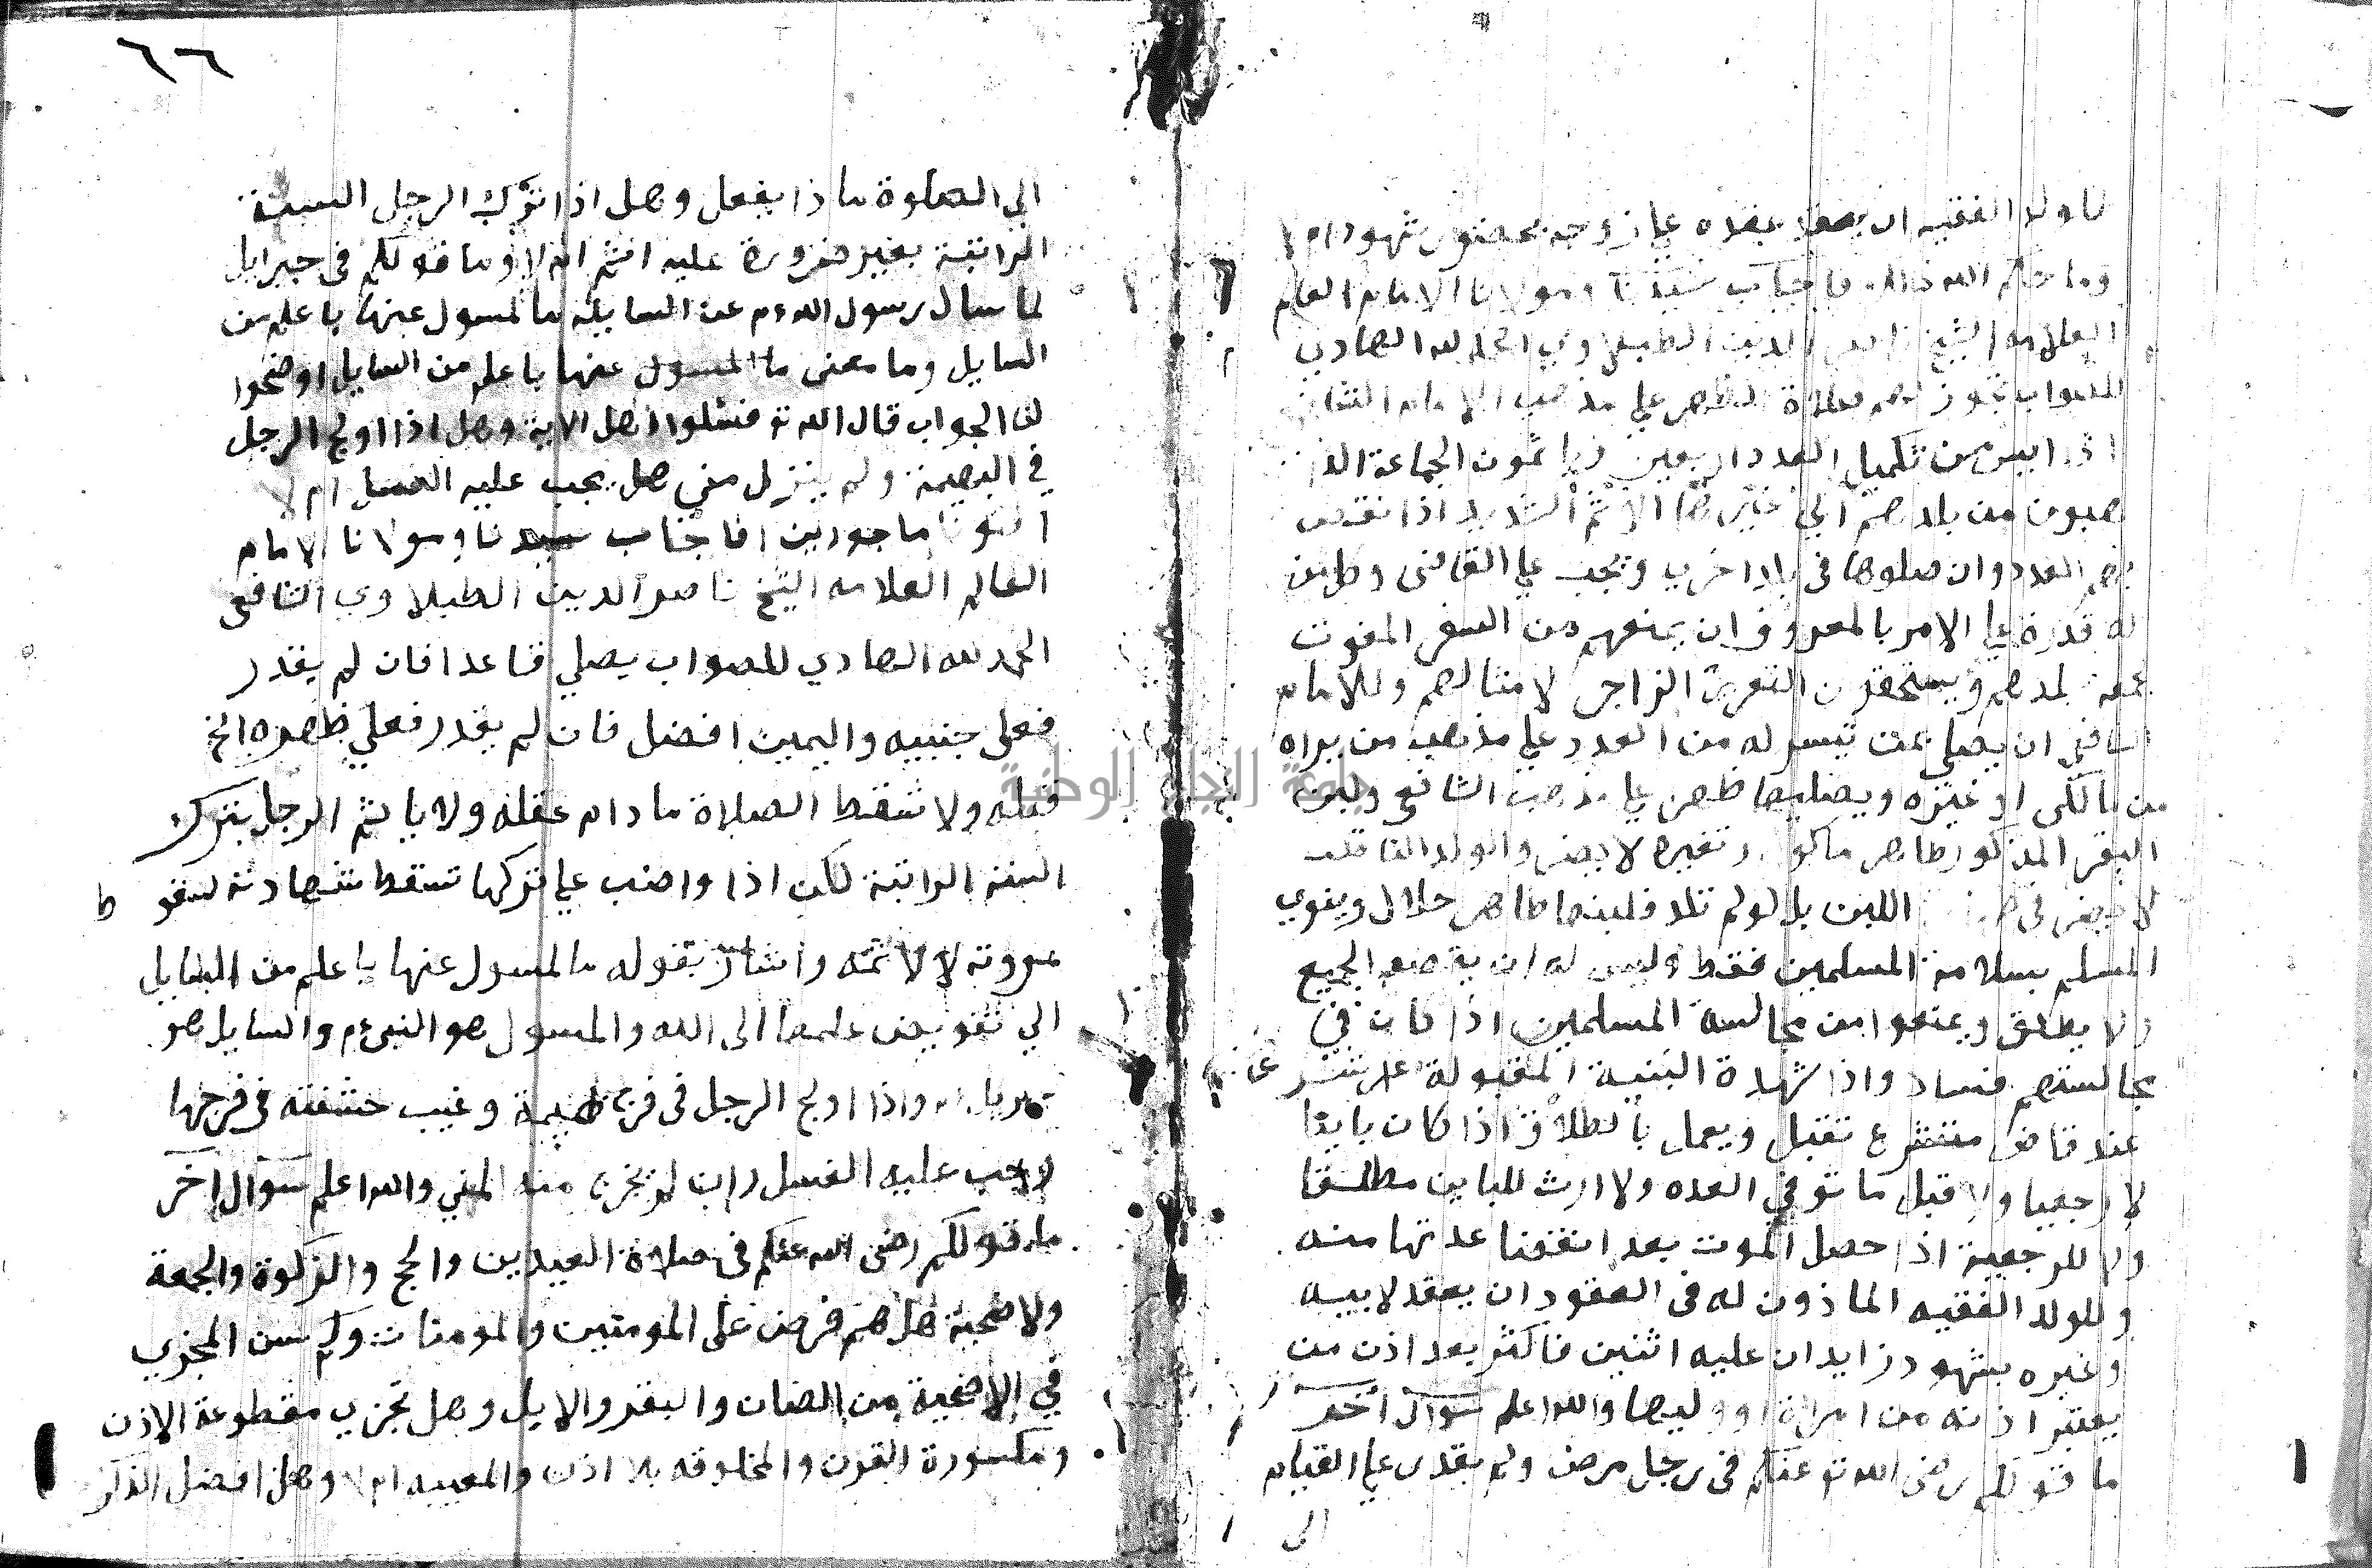 ولد الفقيه ان يعقد عقده علي زوجه بحضور شهود ام لا
وما حكم الله فاجاب سيدنا ومولانا الامام العالم
العلامه الشيخ ناصر الدين الطبلاوي الحمد لله الهادي
للصواب تجوز لهم صلاة الظهر علي مذهب الامام الشافعي
اذا ايس من تكميل العدد اربعين وياثمون الجماعة الذ
هبون من بلدهم الي غيرها الاثم الشديد اذا نقص
بهم العدد وان صلوها في بلد اخري ويجب علي القاضي وكل من
له قدرة علي الامر بالمعروف ان يمنعهم من السفر المفوت
جمعة بلدهم ويستحقون التعزير الزاجر لامثالهم وللامام
الشافعي ان يصلي بمن تيسر له من العدد علي مذهب من يراه
من مالكى او غيره ويصليها ظهر علي مذهب الشافعي ولبن
البقر المذكور طاهر ماكول وتغيره لا يضر والولد
لا يضر في اللبن بل لو لم تلد فلبنها طاهر حلال وينوي
المسلم بسلامه المسلمين فقط وليس له ان يقصد الجميع
ولا يطلق ويمنعوا من مجالسة المسلمين اذا كان في
مجالستهم فساد واذا شهدة البنية المقبولة علي
عند قاض متشرع تقبل ويعمل بالطلاق اذا كان باينا
لا رجعيا ولا قبل مات في العده ولا ارث للباين مطلقا
ولا للرجعية اذا حصل الموت بعد انقضا عدتها منه
وللولد الفقيه الماذون له في العقود ان يعقد لابيه
وغيره بشهود زايدان عليه اثنين فاكثر بعد اذن من
يعتبر اذنه من امراة او وليها والله اعلم سوال آخر
ما قولكم رضى الله تع عنكم في رجل مرض ولم يقدر علي القيام
الى
٦٦
الي الصلوة ماذا يفعل وهل اذا ترك الرجل السنة
الراتبة بغير ضرورة عليه اثم ام لا وما قولكم في جبرايل
لما سال رسول الله م عن السايلة ما المسول عنها باعلم من
السايل وما معنى ما المسول عنها باعلم من السايل اوضحوا
لنا الجواب قال الله تع فسئلوا اهل الاية وهل اذا اولج الرجل
في البهيمة ولم ينزل مني هل يجب عليه الغسل ام لا
افتونا ماجورين افاجاب سيدنا ومولانا الامام
العالم العلامه الشيخ ناصر الدين الطبلاوي الشافعي
الحمد لله الهادي للصواب يصلي قاعدا فان لم يقدر
فعلى جنبيه واليمين افضل فان لم يقدر فعلي ظهره الخ
قبله ولا تسقط الصلاة ما دام عقله ولا ياثم الرجل بترك
السنة الراتبة لكن اذا واضب علي تركها تسقط شهادته لسقو ط
مروته لا لاثمه واشار بقوله ما المسول عنها باعلم من السايل
الي تفويض علمها الى الله والمسول هو النبي م والسايل هو
جبريل واذا اولج الرجل في فرج بهيمة وغيب حشفته في فرجها
وجب عليه الغسل وان لم يخرج منه المني والله اعلم سوال آخر
ما قولكم رضى الله عنكم في صلاة العيدين والحج والزكوة والجمعة
ولاضحية هل هم فرض على المومنين والمومنات وكم سن المجزي
في الاضحية من الضان والبقر والابل وهل تجزي مقطوعة الاذن
ومكسورة القرن والمخلوقه بلا اذن والمعيبه ام لا وهل افضل الذكر
جامعة النجاح الوطنية